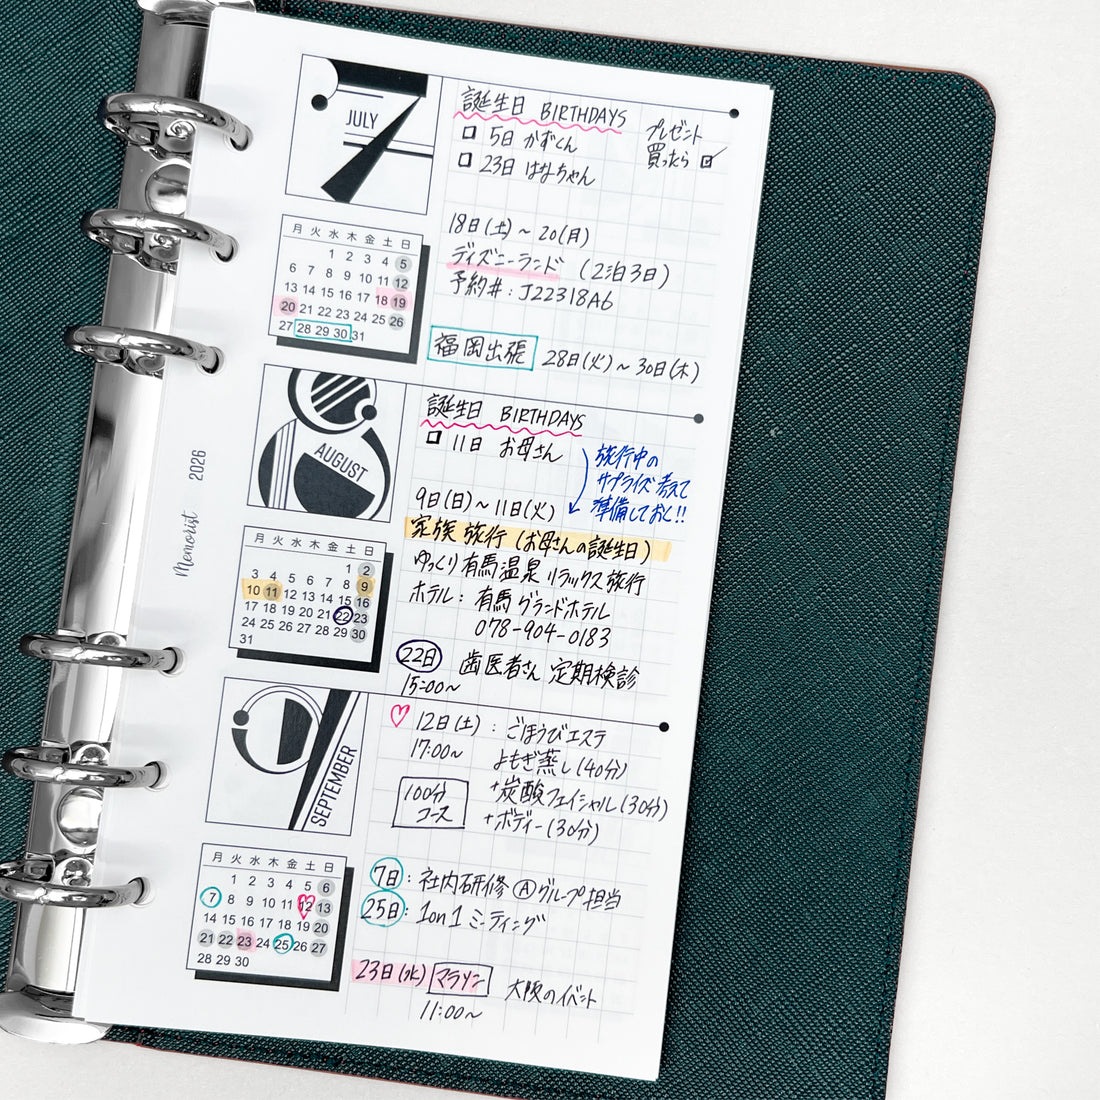 Memorist 2026
7
JULY
誕生日 BIRTHDAYS
5日 かずくん
23日 はなちゃん
プレゼント
買ったら
18日(土)~20(月)
ディズニーランド (2泊3日)
予約#:J22318A6
福岡出張 28日(火)~30日(木)
月 火 水 木 金 土 日
1 2 3 4 5
6 7 8 9 10 11 12
13 14 15 16 17 18 19
20 21 22 23 24 25 26
27 28 29 30 31
8
AUGUST
誕生日 BIRTHDAYS
11日 お母さん
旅行中の
サプライズ考えて
準備しておく!!
9日(日)~11日(火)
家族旅行(お母さんの誕生日)
ゆっくり有馬温泉リラックス旅行
ホテル:有馬グランドホテル
078-904-0183
22日 歯医者さん 定期検診
15:00~
月 火 水 木 金 土 日
1 2
3 4 5 6 7 8 9
10 11 12 13 14 15 16
17 18 19 20 21 22 23
24 25 26 27 28 29 30
31
9
SEPTEMBER
12日(土):ごほうびエステ
17:00~ よもぎ蒸し(40分)
+炭酸フェイシャル(30分)
+ボディー(30分)
100分
コース
7日:社内研修 Aグループ担当
25日:1on1ミーティング
23日(水) マラソン 大阪のイベント
11:00~
月 火 水 木 金 土 日
1 2 3 4 5 6
7 8 9 10 11 12 13
14 15 16 17 18 19 20
21 22 23 24 25 26 27
28 29 30